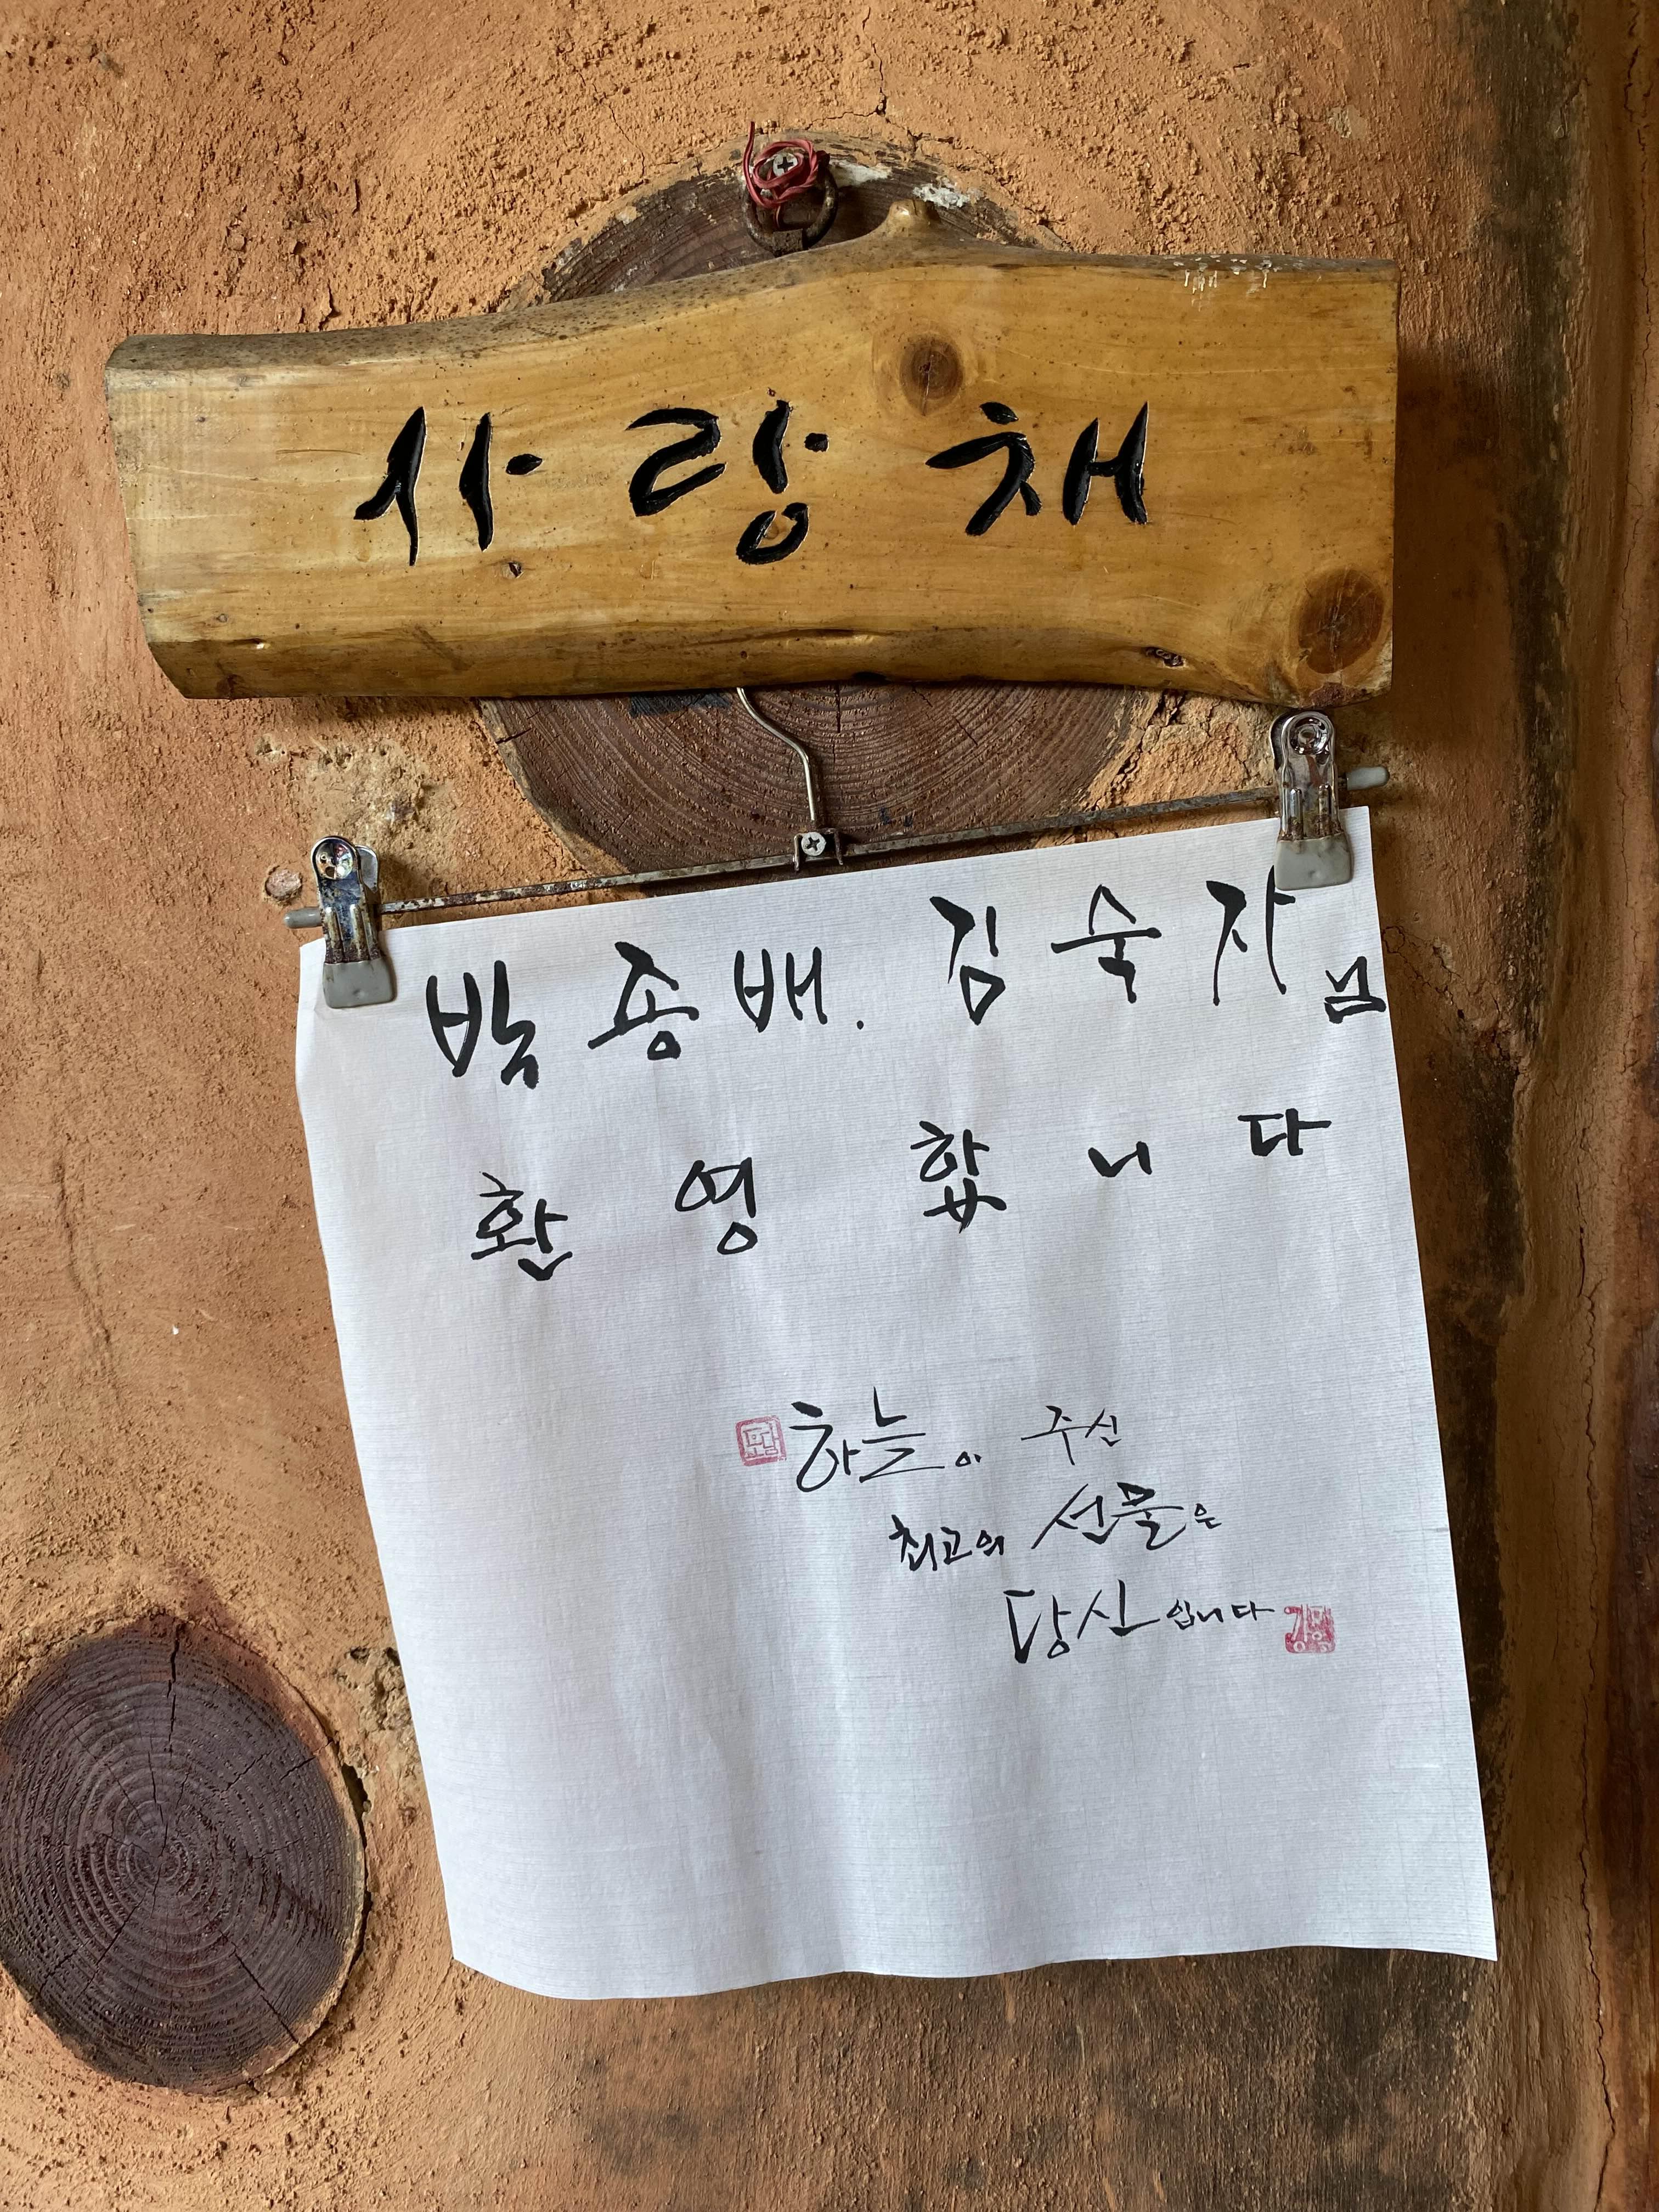 사랑채
박종배. 김숙자님
환영합니다
하늘이 주신
최고의 선물은
당신입니다